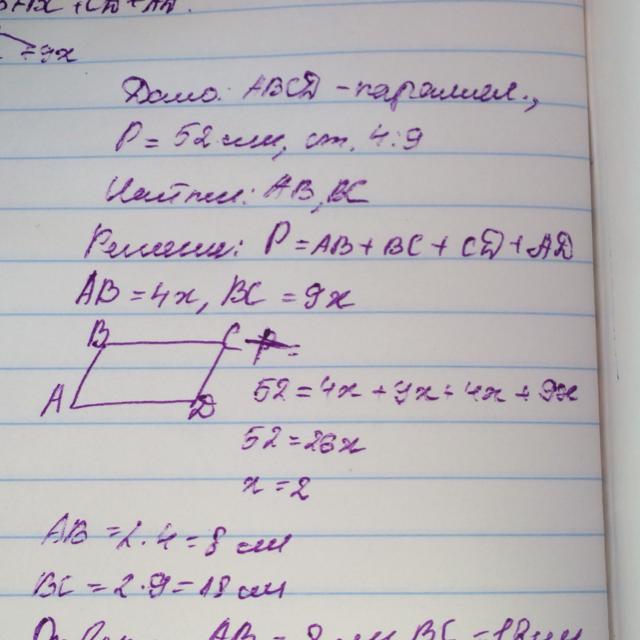 + BC + CD + AD.
= 9x
Дано: ABCD - параллел.,
P = 52 см, ст. 4:9
Найти: AB, BC
Решение: P = AB + BC + CD + AD
AB = 4x, BC = 9x
B C P =
A D
52 = 4x + 9x + 4x + 9x
52 = 26x
x = 2
AB = 2 · 4 = 8 см
BC = 2 · 9 = 18 см
AB = 8 см BC = 18 см